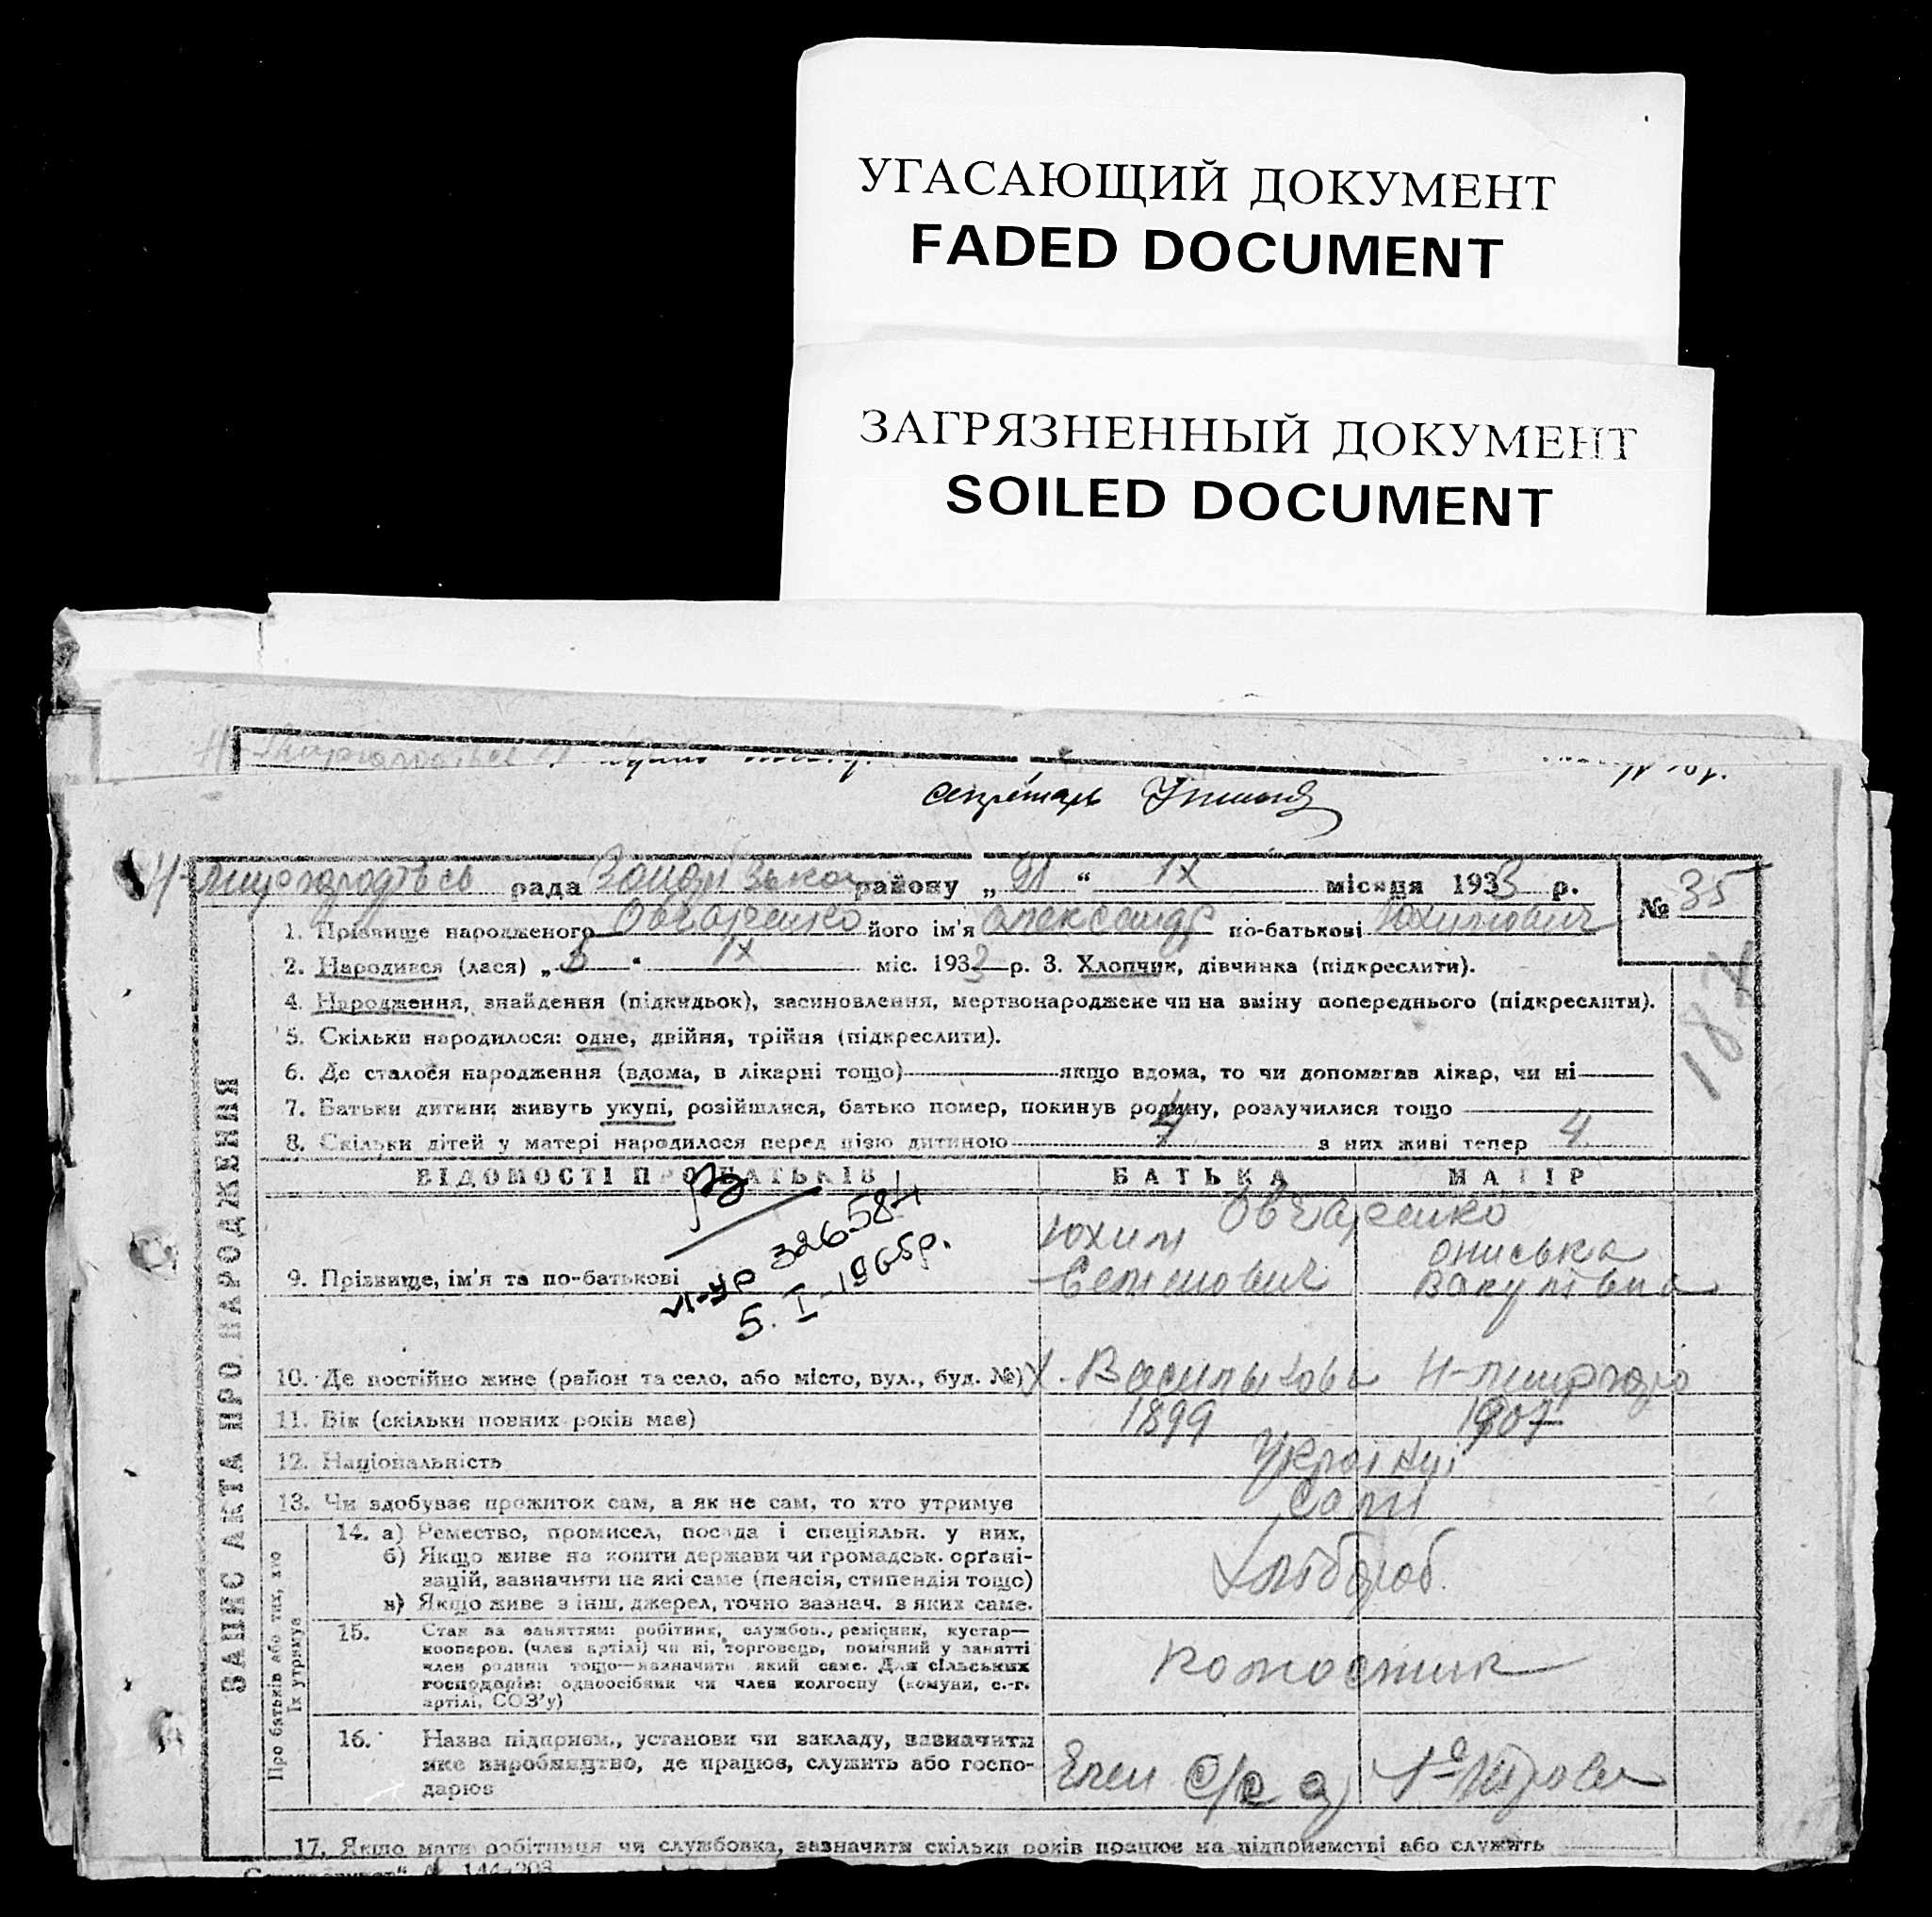 УГАСАЮЩИЙ ДОКУМЕНТ
FADED DOCUMENT
ЗАГРЯЗНЕННЫЙ ДОКУМЕНТ
SOILED DOCUMENT
секретарь
рада району „ “ IX місяця 1933 р.
№ 35
1. Прізвище народженого Овчаренко його ім'я Олександр по-батькові Юхимович
2. Народився (лася) „ “ IX міс. 1933 р. 3. Хлопчик, дівчинка (підкреслити).
4. Народження, знайдення (підкидьок), засиновлення, мертвонароджене чи на зміну попереднього (підкреслити).
5. Скільки народилося: одне, двійня, трійня (підкреслити).
6. Де сталося народження (вдома, в лікарні тощо) якщо вдома, то чи допомагав лікар, чи ні
7. Батьки дитини живуть укупі, розійшлися, батько помер, покинув родину, розлучилися тощо
8. Скільки дітей у матері народилося перед цією дитиною 4 з них живі тепер 4
187
ЗАПИС АКТА ПРО НАРОДЖЕННЯ
ВІДОМОСТІ ПРО БАТЬКІВ БАТЬКА МАТІР
Овчаренко
Юхим Ониська
9. Прізвище, ім'я та по-батькові Семенович Вакулівна
VI-УР 326584
5. I-1965р.
10. Де постійно живе (район та село, або місто, вул., буд. №) Х.
11. Вік (скільки повних років має) 1899 1907
12. Національність Українці
13. Чи здобуває прожиток сам, а як не сам, то хто утримує Самі
Про батьків або тих, хто їх утримує
14. а) Ремество, промисел, посада і спеціяльн. у них,
б) Якщо живе на кошти держави чи громадськ. орґані-
зацій, зазначити на які саме (пенсія, стипендія тощо)
в) Якщо живе з інш. джерел, точно зазнач. з яких саме.
Хлібороб.
15. Стан за заняттям: робітник, службов., ремісник, кустар—
кооперов. (член артілі) чи ні, торговець, помічний у занятті
член родини тощо—назначити який саме. Для сільських
господарів: одноосібник чи член колгоспу (комуни, с.-г.
артілі, СОЗ'у)
16. Назва підприєм., установи чи закладу, зазначити
яке виробництво, де працює, служить або госпо-
дарює
Член с/г а)
17. Якщо мати робітниця чи службовка, зазначити скільки років працює на підприємстві або служить